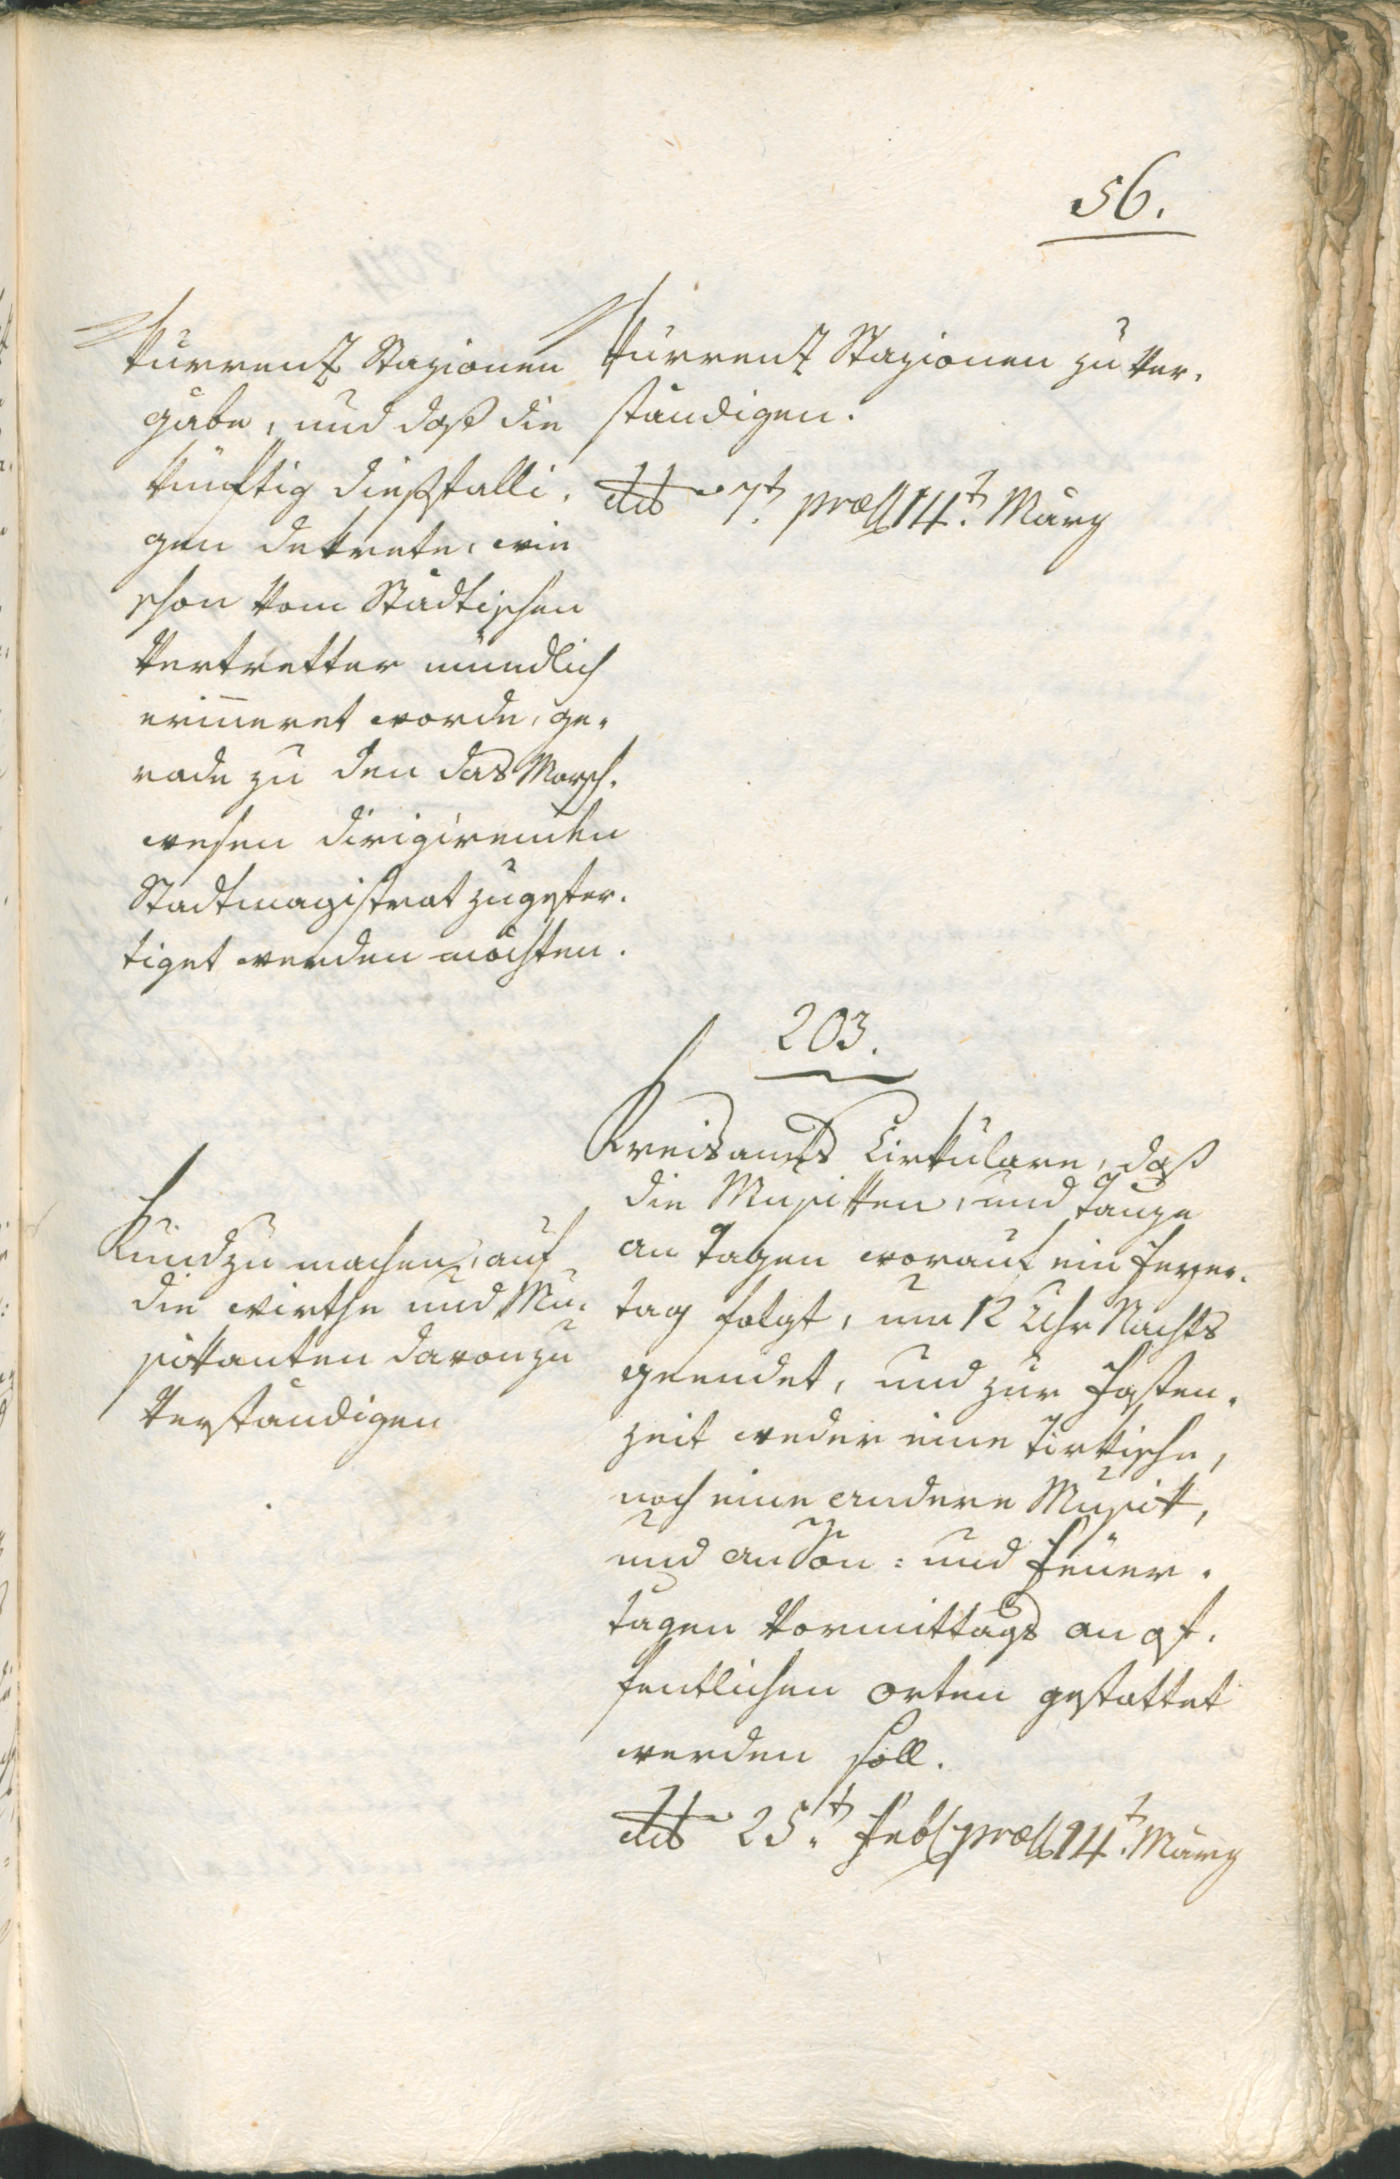 56.
kurrenz Stazionen
gabe, und daß die
künftig dießfälli,
gen dekrete, wie
schon vom Städtischen
Vertretter mündlich
erinneret worde, ge,
rade zu den das Marsch,
wesen dirigirenden
Stadtmagistrat zugefer,
tiget werden möchten.
kurrenz Stazionen zu ver,
ständigen.
dto 7t. præs 14t. März
203.
Kreisamts Cirkulare, daß
die Musikken, und Tänze
an Tagen worauf ein Feyer,
tag folgt, um 12 Uhr Nachts
geendet, und zur Fasten,
zeit weder eine Türkische,
noch eine andere Musik,
und an Son= und Feüer,
tagen Vormittags an öf,
fentlichen orten gestattet
werden soll.
dto 25t. Feb præs 14t. März
Kund zu machen, auch
die wirthe und Mu,
sikanten davon zu
verständigen